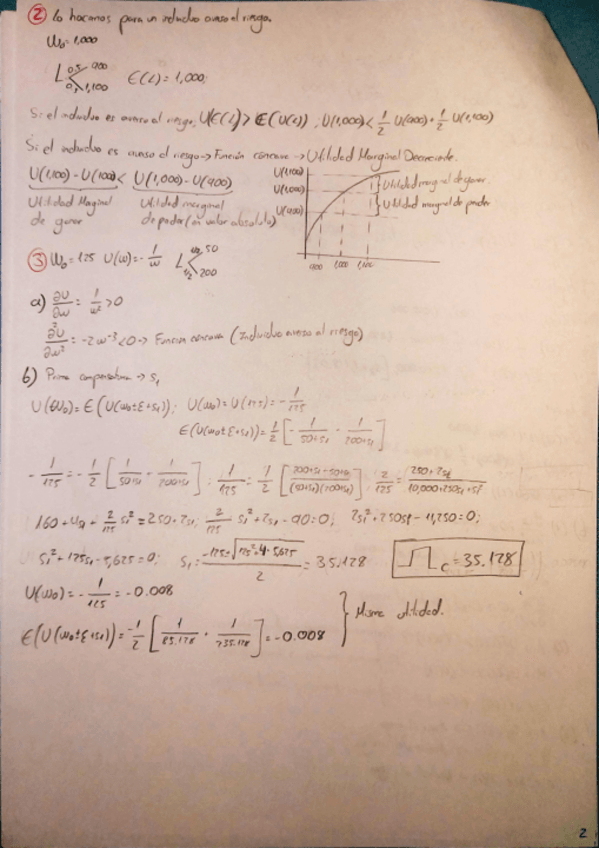 ② Lo hacemos para un individuo averso al riesgo.
W₀ = 1,000
L 0,5 900 0,5 1,100 E(L) = 1,000;
Si el individuo es averso al riesgo, U(E(L)) > E(U(L)) ; U(1,000) < 1/2 U(900) + 1/2 U(1,100)
Si el individuo es averso al riesgo → Función cóncava → Utilidad Marginal Decreciente.
U(1,100) - U(1000) < U(1,000) - U(900)
Utilidad Marginal de ganar
Utilidad marginal de perder (en valor absoluto)
U(1,100)
U(1,000)
U(900)
Utilidad marginal de ganar.
Utilidad marginal de perder
900 1,000 1,100
③ W₀ = 125 U(w) = -1/w L 1/2 50 1/2 200
a) ∂U/∂w = 1/w² > 0
∂²U/∂w² = -2w⁻³ < 0 → Función cóncava (Individuo averso al riesgo)
b) Prima compensatoria → S₁
U(W₀) = E(U(w₀ ± ε + s₁)); U(w₀) = U(125) = -1/125
E(U(w₀ ± ε + s₁)) = 1/2 [-1/(50+s₁) - 1/(200+s₁)]
-1/125 = -1/2 [1/(50+s₁) + 1/(200+s₁)] ; 1/125 = 1/2 [(200+s₁+50+s₁)/((50+s₁)(200+s₁))] ; 2/125 = (250+2s₁)/(10,000+250s₁+s₁²)
160 + 4s₁ + 2/125 s₁² = 250 + 2s₁; 2/125 s₁² + 2s₁ - 90 = 0; 2s₁² + 250s₁ - 11,250 = 0;
s₁² + 125s₁ - 5,625 = 0; s₁ = (-125 + √(125² + 4·5,625))/2 = 35.128
Π_c = 35.128
U(w₀) = -1/125 = -0.008
E(U(w₀ ± ε + s₁)) = -1/2 [1/85.128 + 1/235.128] = -0.008
Misma utilidad.
2